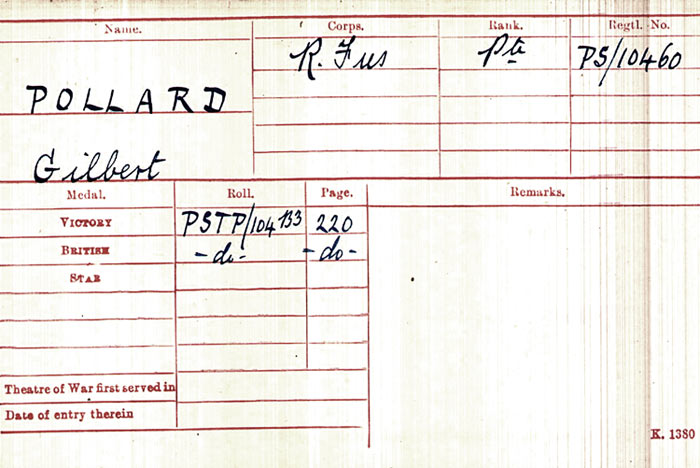 Name. Corps. Rank. Regtl. No.
R. Fus Pte PS/10460
POLLARD
Gilbert
Medal. Roll. Page. Remarks.
VICTORY PSTP/104 133 220
BRITISH -do- -do-
STAR
Theatre of War first served in
Date of entry therein
K. 1380